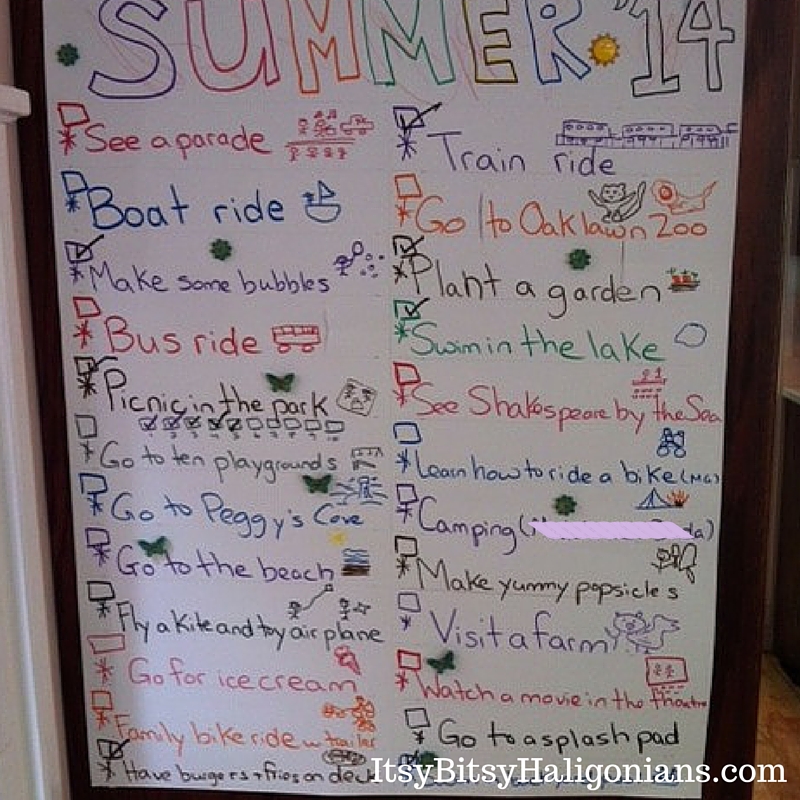 SUMMER '14
See a parade
Boat ride
Make some bubbles
Bus ride
Picnic in the park
1 2 3 4 5 6 7 8 9 10
Go to ten playgrounds
Go to Peggy's Cove
Go to the beach
Fly a kite and toy airplane
Go for ice cream
Family bike ride w trailer
Have burgers + fries on deck
Train ride
Go to Oaklawn Zoo
Plant a garden
Swim in the lake
See Shakespeare by the Sea
Learn how to ride a bike (MG)
Camping (
Make yummy popsicles
Visit a farm
Watch a movie in the theatre
Go to a splash pad
ItsyBitsyHaligonians.com